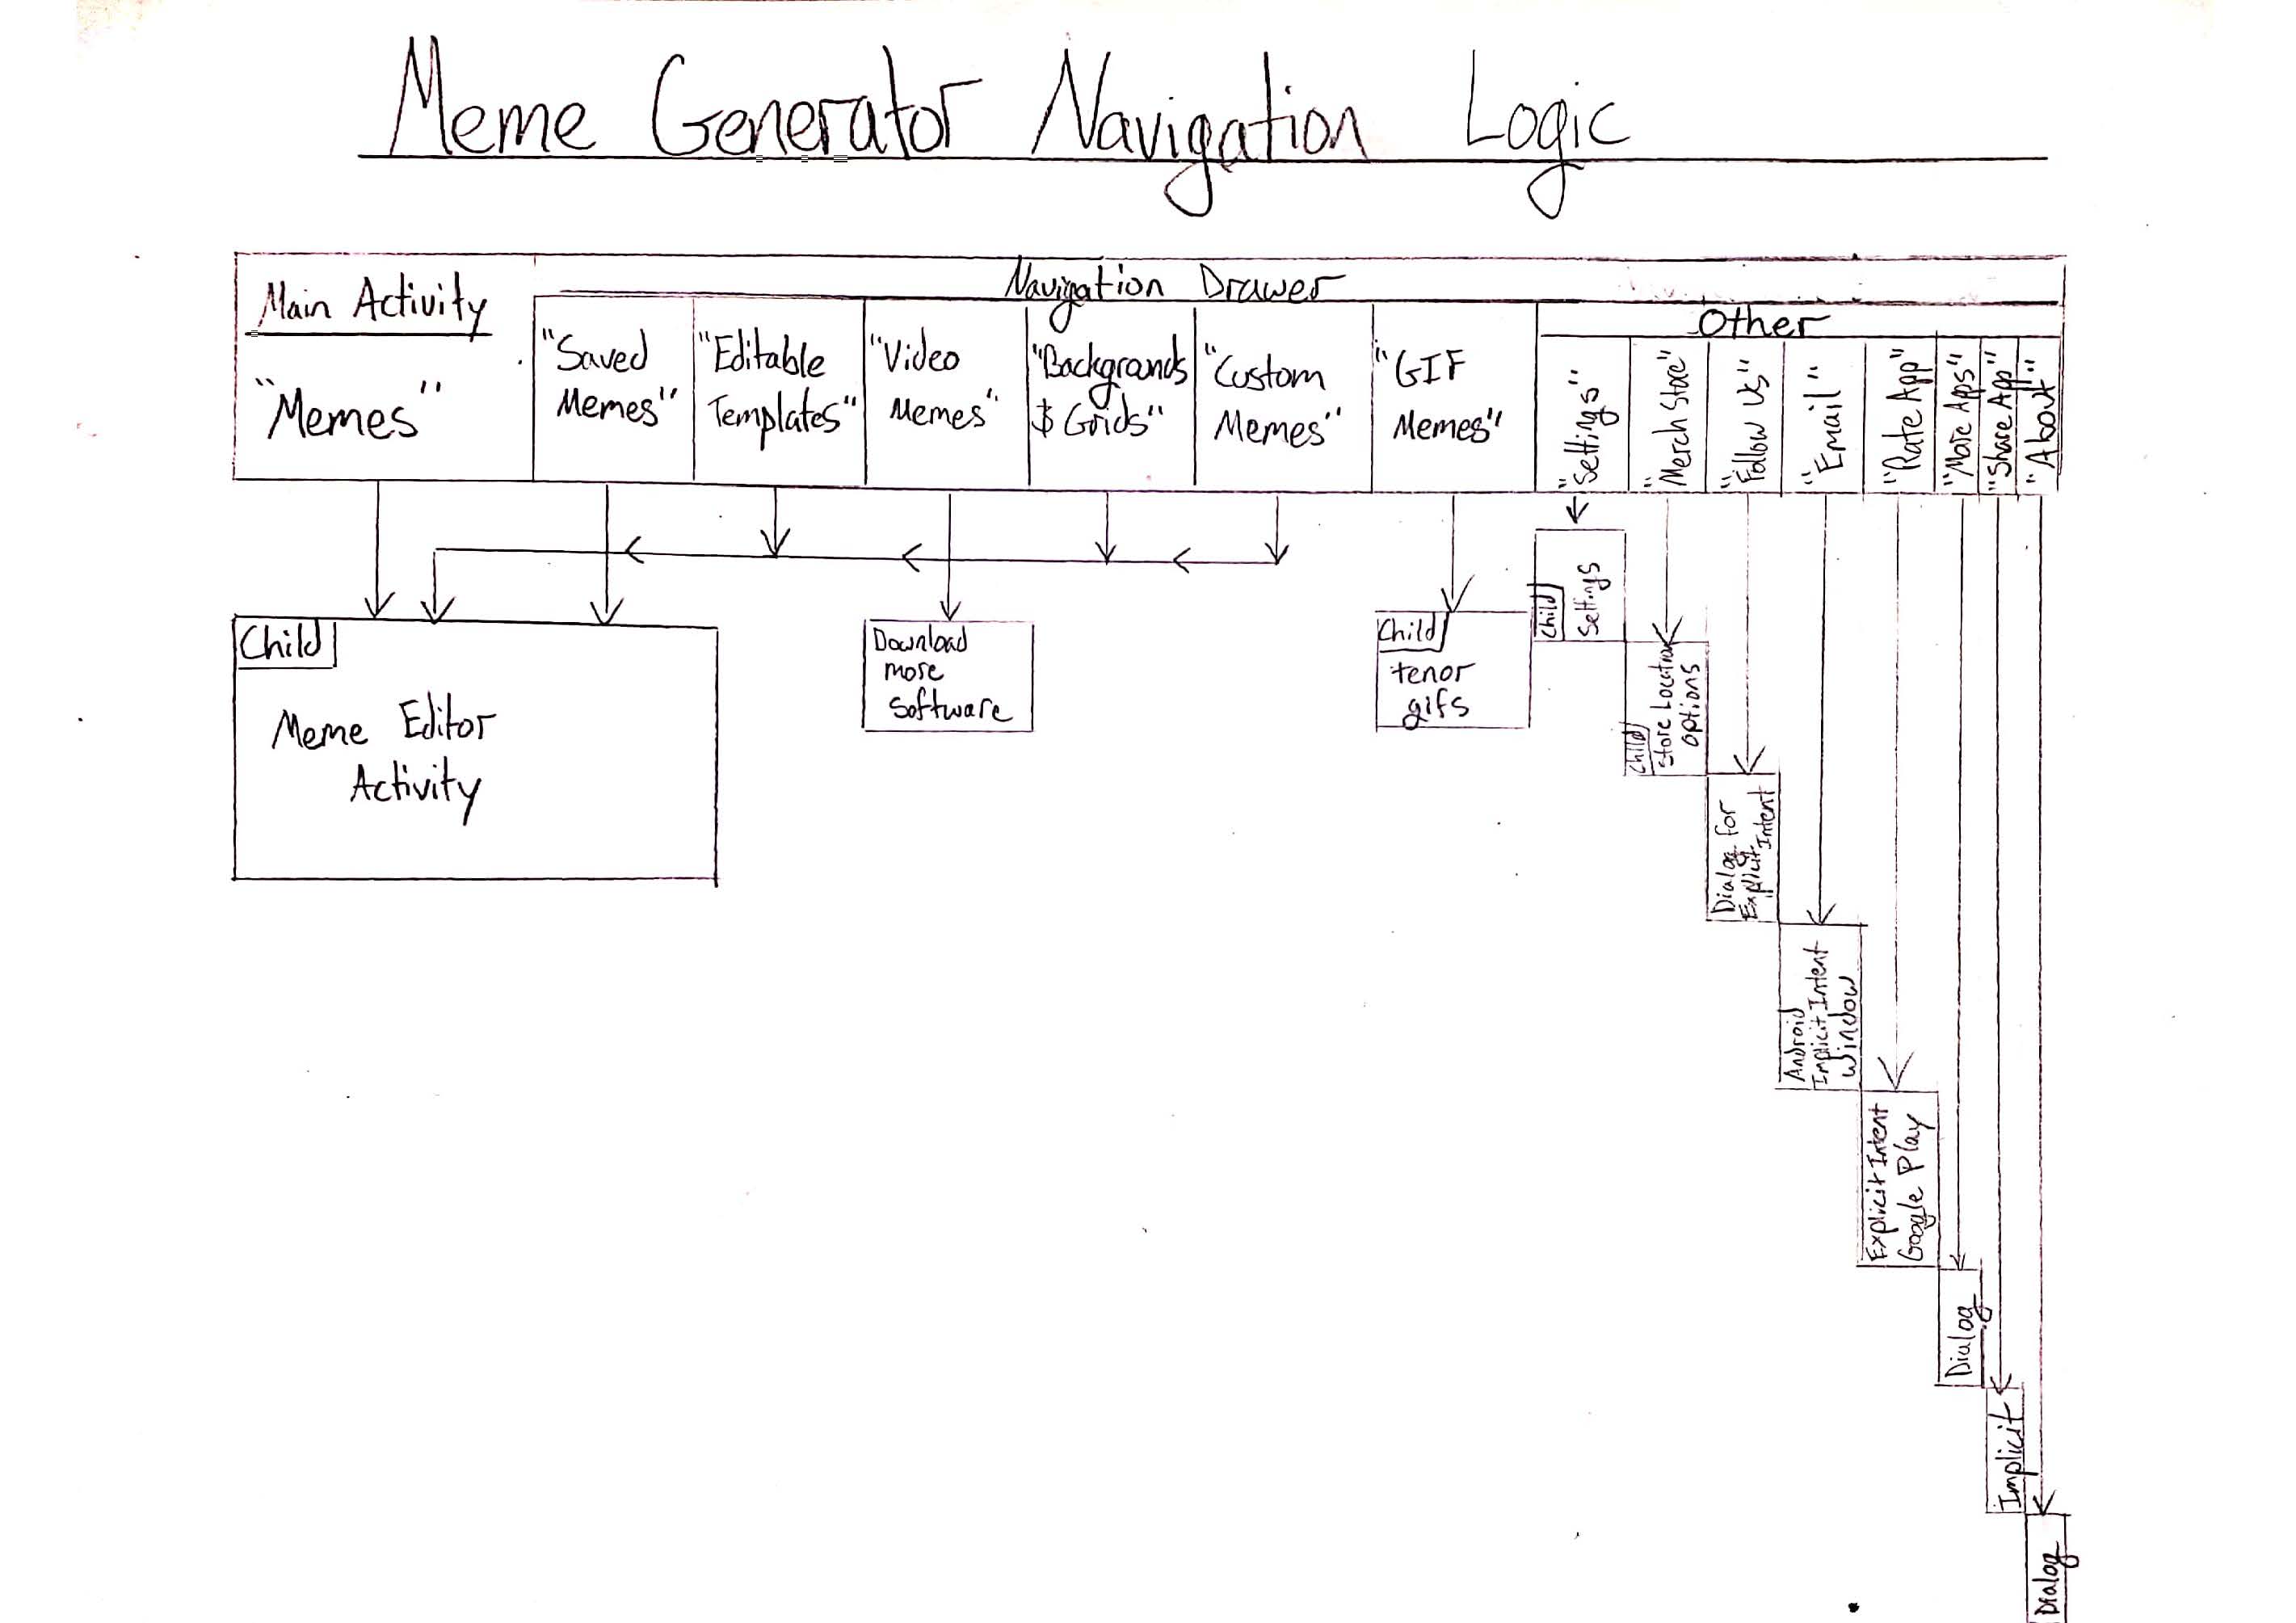 Meme Generator Navigation Logic
Navigation Drawer
Main Activity
"Memes"
"Saved
Memes"
"Editable
Templates"
"Video
Memes"
"Backgrounds
$ Grids"
"Custom
Memes"
"GIF
Memes"
Other
"Settings"
"Merch Store"
"Follow Us"
"Email"
"Rate App"
"More Apps"
"Share App"
"About"
Child
Meme Editor
Activity
Download
more
Software
Child
tenor
gifs
Child
Settings
Child
Store Location
options
Dialog for
Explicit Intent
Android
Implicit Intent
Window
Explicit Intent
Google Play
Dialog
Implicit
Dialog